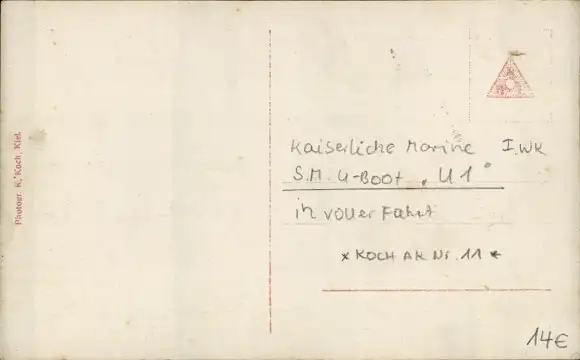 Photogr. K. Koch, Kiel.
Kaiserliche Marine I. WK
S.M. U-Boot „U1"
in voller Fahrt
x KOCH AK Nr. 11 x
14€